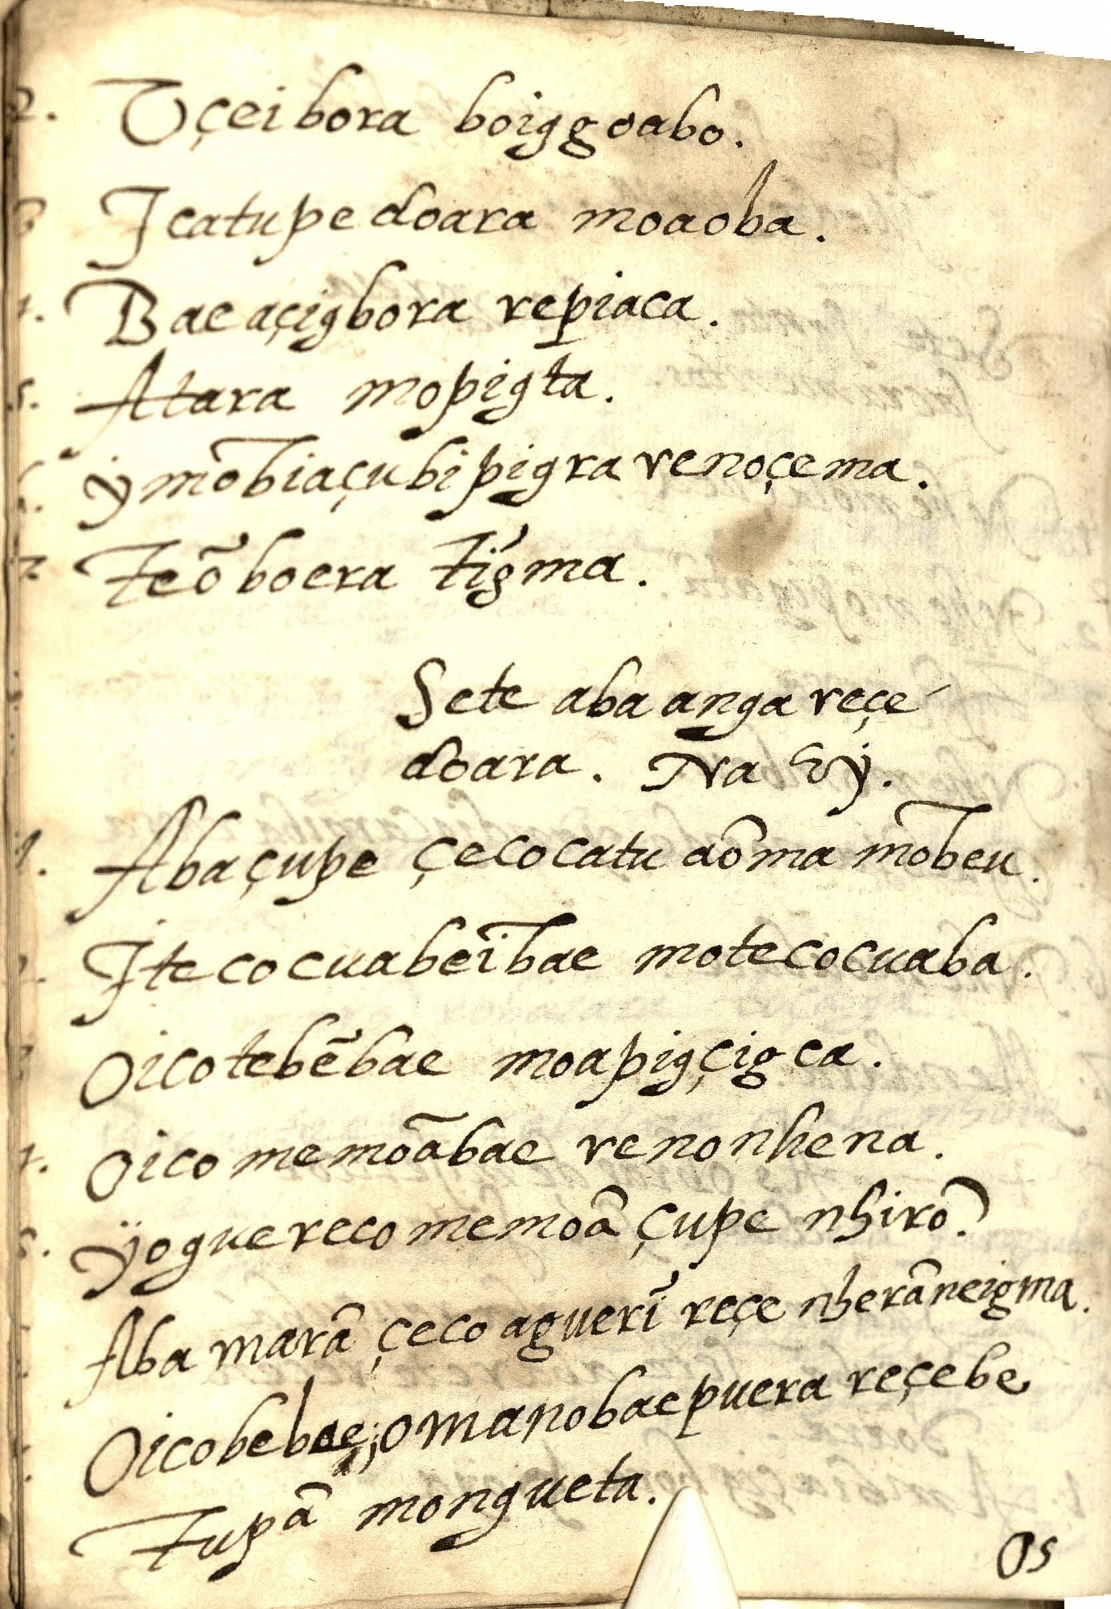 2. Vçeibora boiggoabo.
3 Jcatupe doara moaoba.
4. Baeaçigbora repiaca.
5. Atara mopigta.
6. ẏ mõbiaçubipigra renoçema.
7 Teõboera tĩgma.
Sete aba anga reçe
doara. Na Eỹ.
1. Abaçupe çecocatu aõma mõbeu.
2. Jtecocuabeĩbae motecocuaba.
3 Oicotebẽbae moapigçigca.
4. Oico memoãbae renonhena.
5. ÿoguereco memoã çupe nhirõ.
Aba marã çeco aguerĩ reçe nherãneigma.
Oicobebae, omanobaepuera reçebe
Tupã mongueta.
Os